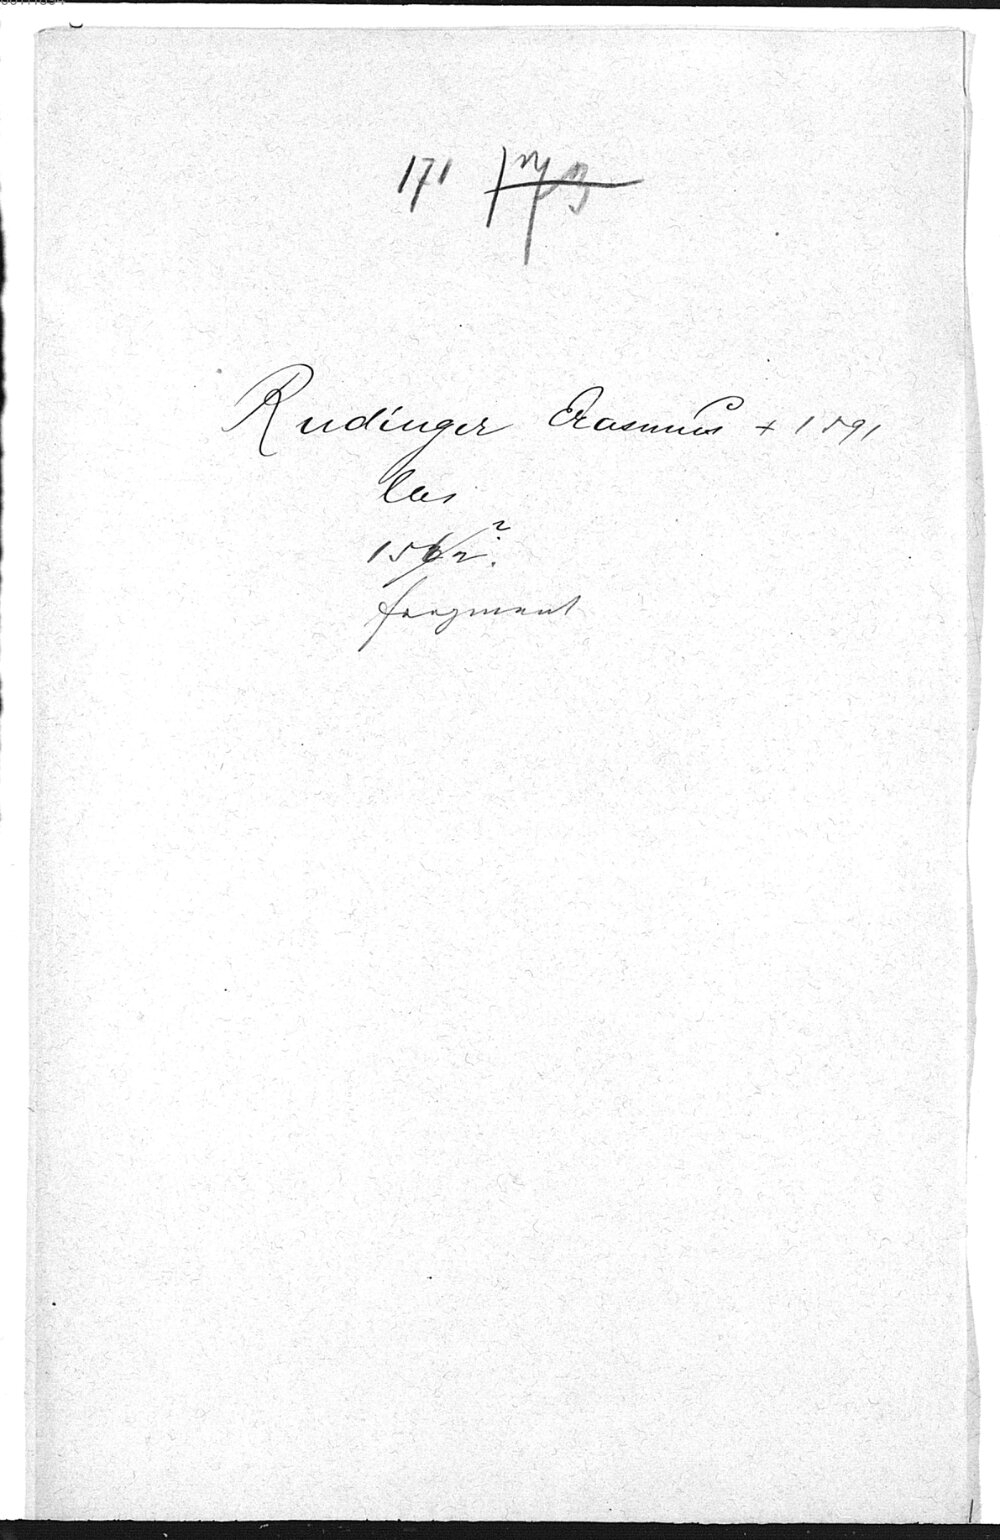 171 173
Rudinger Erasmus + 1591
las
1562?
fragment